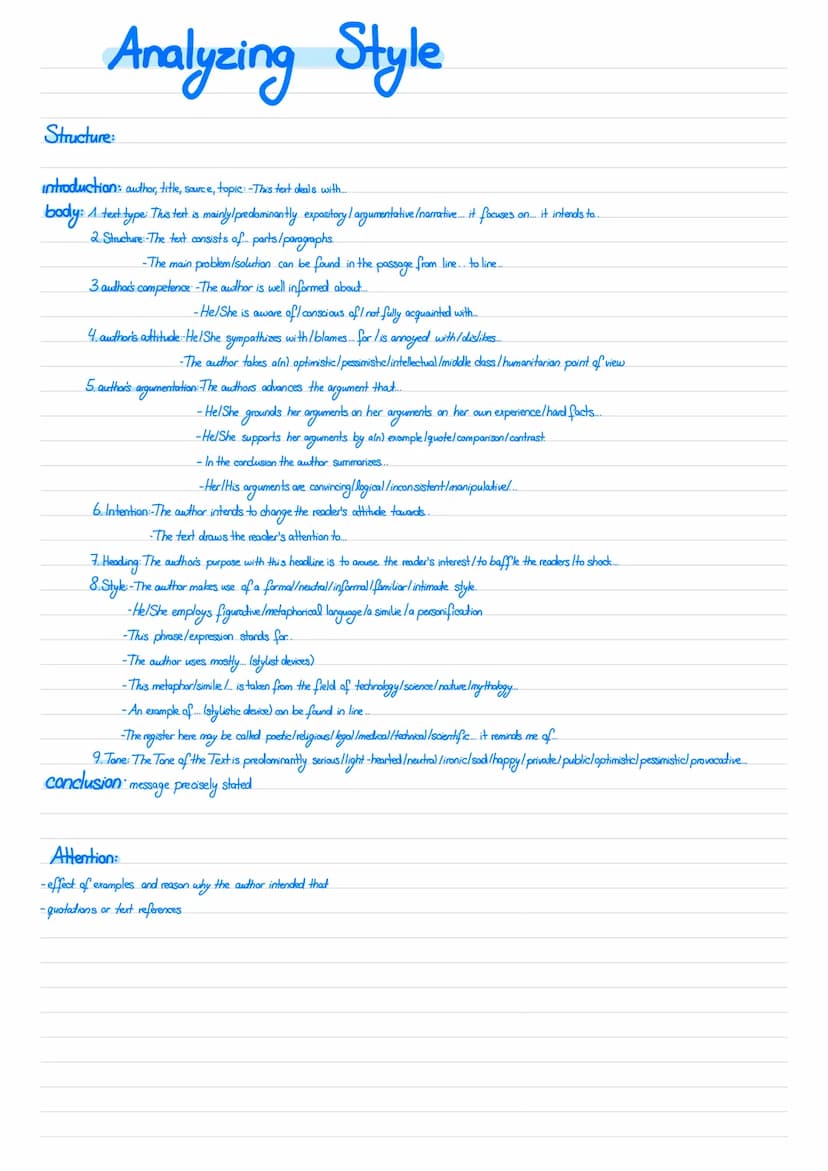 Analyzing Style
Structure:
introduction: author, title, source, topic: -This text deals with...
body: 1. text type: This text is mainly/predominantly expository/argumentative/narrative... it focuses on... it intends to...
2. Structure: -The text consists of... parts/paragraphs.
-The main problem/solution can be found in the passage from line... to line...
3. author's competence: -The author is well informed about...
-He/She is aware of/conscious of/not fully acquainted with...
4. author's attitude: He/She sympathizes with/blames... for/is annoyed with/dislikes...
-The author takes a(n) optimistic/pessimistic/intellectual/middle class/humanitarian point of view
5. author's argumentation: -The authors advances the argument that...
-He/She grounds her arguments on her arguments on her own experience/hard facts...
-He/She supports her arguments by a(n) example/quote/comparison/contrast.
-In the conclusion the author summarizes...
-Her/His arguments are convincing/logical/inconsistent/manipulative/...
6. Intention: -The author intends to change the reader's attitude towards...
-The text draws the reader's attention to...
7. Heading: The author's purpose with this headline is to arouse the reader's interest/to baffle the readers/to shock...
8. Style: -The author makes use of a formal/neutral/informal/familiar/intimate style.
-He/She employs figurative/metaphorical language/a similie/a personification
-This phrase/expression stands for...
-The author uses mostly... (stylist devices)
-This metaphor/simile/... is taken from the field of technology/science/nature/mythology...
-An example of... (stylistic device) can be found in line...
-The register here may be called poetic/religious/legal/medical/technical/scientific... it reminds me of...
9. Tone: The Tone of the Text is predominantly serious/light-hearted/neutral/ironic/sad/happy/private/public/optimistic/pessimistic/provocative...
conclusion: message precisely stated
Attention:
-effect of examples and reason why the author intended that
-quotations or text references